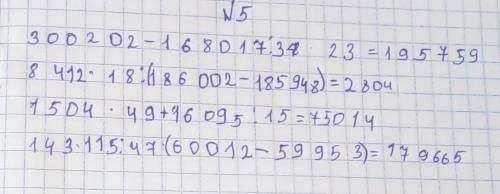 №5
300202-168017:37·23=195759
8 412·18:(186002-185948)=2804
1504·49+16095:15=75014
143·115:47·(60012-59953)=179665